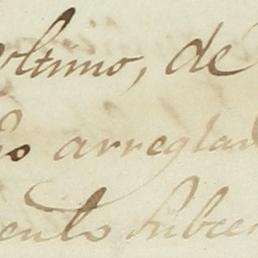 ultimo, de
arreglad
ento subce